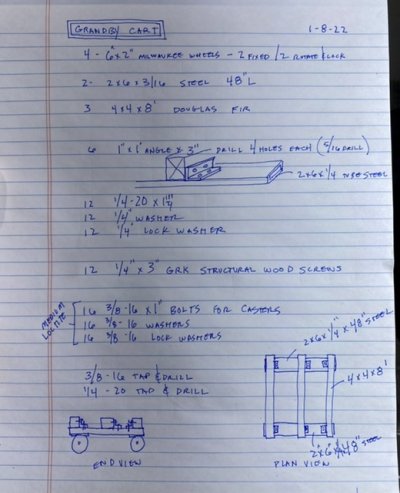 GRANDBY CART 1-8-22
4 - 6"x2" MILWAUKEE WHEELS - 2 FIXED / 2 ROTATE & LOCK
2- 2x6x3/16 STEEL 48"L
3 4x4x8' DOUGLAS FIR
6 1"x1" ANGLE x 3" - DRILL 4 HOLES EACH (5/16 DRILL)
2x6x1/4 TUBE STEEL
12 1/4-20 x 1 1/4"
12 1/4" WASHER
12 1/4" LOCK WASHER
12 1/4" x 3" GRK STRUCTURAL WOOD SCREWS
MEDIUM LOCTITE
16 3/8-16 x 1" BOLTS FOR CASTERS
16 3/8-16 WASHERS
16 3/8-16 LOCK WASHERS
2x6x1/4x48" STEEL
3/8-16 TAP & DRILL
1/4-20 TAP & DRILL
4x4x8'
2"x6" 48" STEEL
END VIEW
PLAN VIEW